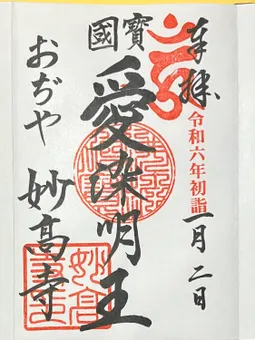 奉拝
令和六年初詣
一月二日
國寶
愛染明王
おぢや
妙高寺